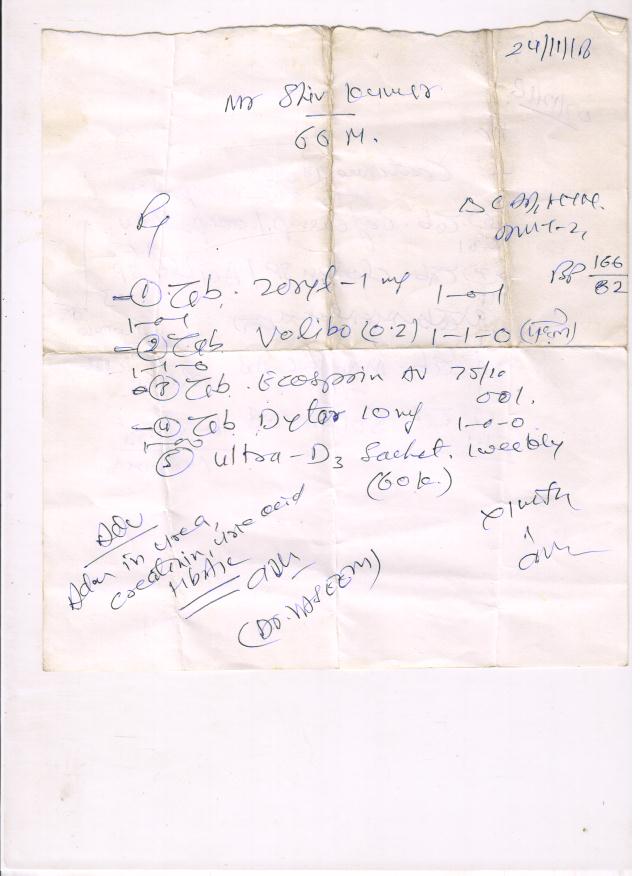 24/11/18
Mr Shiv Kumar
66 M.
Rx
Δ CAD, HTN.
DMT-2,
BP 166/82
① Tab. Zoryl-1 mg 1-0-1
1-0-1
② Tab Volibo (0.2) 1-1-0 (पहले)
1-1-0
③ Tab. Ecosprin AV 75/10
001.
④ Tab Dytor 10 mg 1-0-0
1-0-0
⑤ Ultra-D3 Sachet. 1 weekly
(60k.)
x1mth
Adv
urea,
creatinin, uric acid
HbA1c
(Dr. WASEEM)